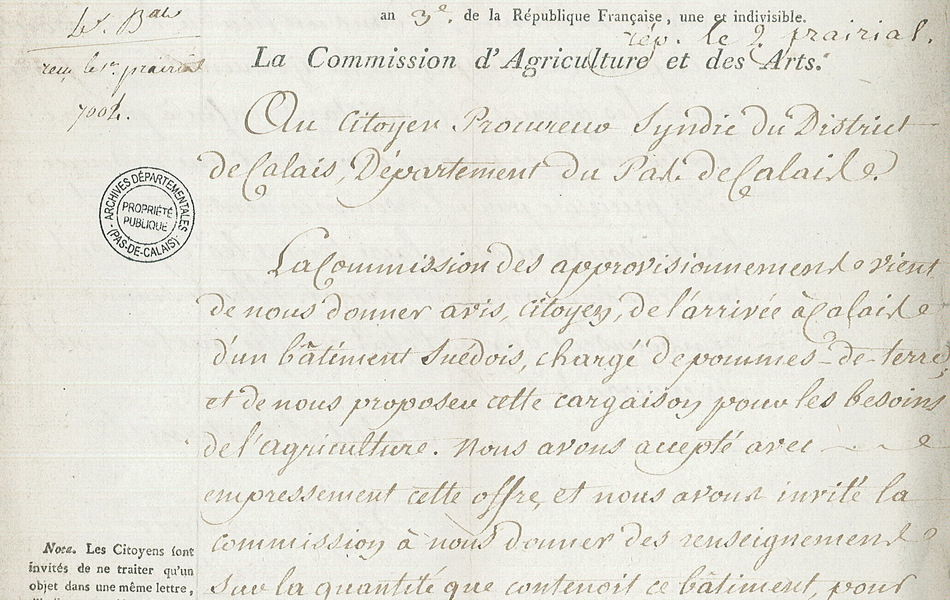 an 3e. de la République Française, une et indivisible.
rép. le 2 prairial.
La Commission d'Agriculture et des Arts.
4e. Bau
reçu le 1er prairial
Au Citoyen Procureur Syndic du District
de Calais, Département du Pas. de Calais.
ARCHIVES DÉPARTEMENTALES
PROPRIÉTÉ
PUBLIQUE
(PAS-DE-CALAIS)
La Commission des approvisionnements vient
de nous donner avis, Citoyen, de l'arrivée à Calais
d'un bâtiment Suédois, chargé de pommes-de-terre,
et de nous proposer cette cargaison pour les besoins
de l'agriculture. Nous avons accepté avec
empressement cette offre, et nous avons invité la
commission à nous donner des renseignements
sur la quantité que contenoit ce bâtiment, pour
Nota. Les Citoyens sont
invités de ne traiter qu'un
objet dans une même lettre,